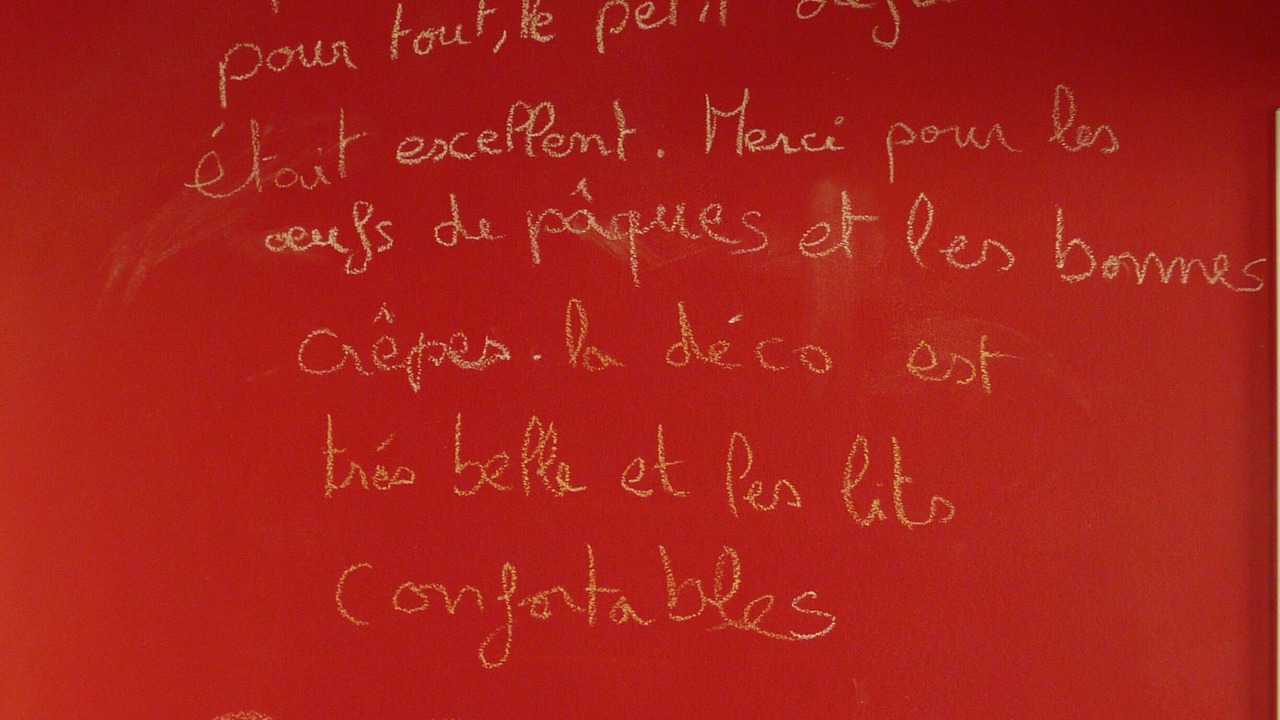 pour tout, le petit
était excellent. Merci pour les
œufs de pâques et les bonnes
crêpes. la déco est
trés belle et les lits
confortables